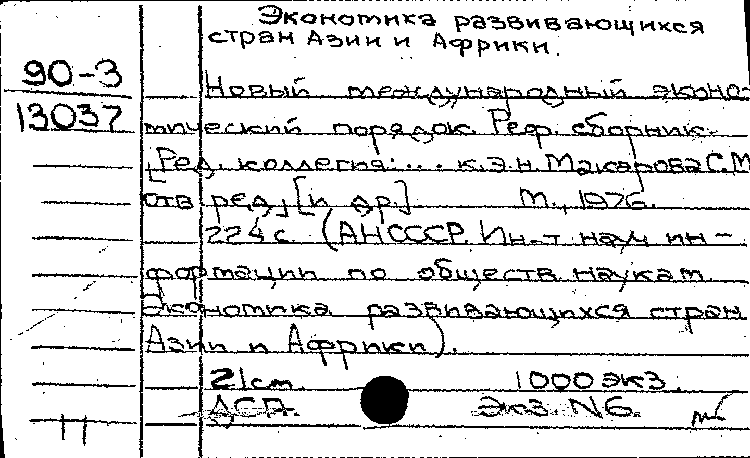 Экономика развивающихся
стран Азии и Африки.
90-3
13037
Новый международный эконо-
мический порядок. Реф. сборник.
[Ред. коллегия: ... к.э.н. Макарова С.М.
отв ред.] [и др.] М., 1976.
224 с. (АН СССР. Ин-т науч ин-
формации по обществ. наукам.
Экономика развивающихся стран
Азии и Африки).
21 см. 1000 экз.
Экз. N6.